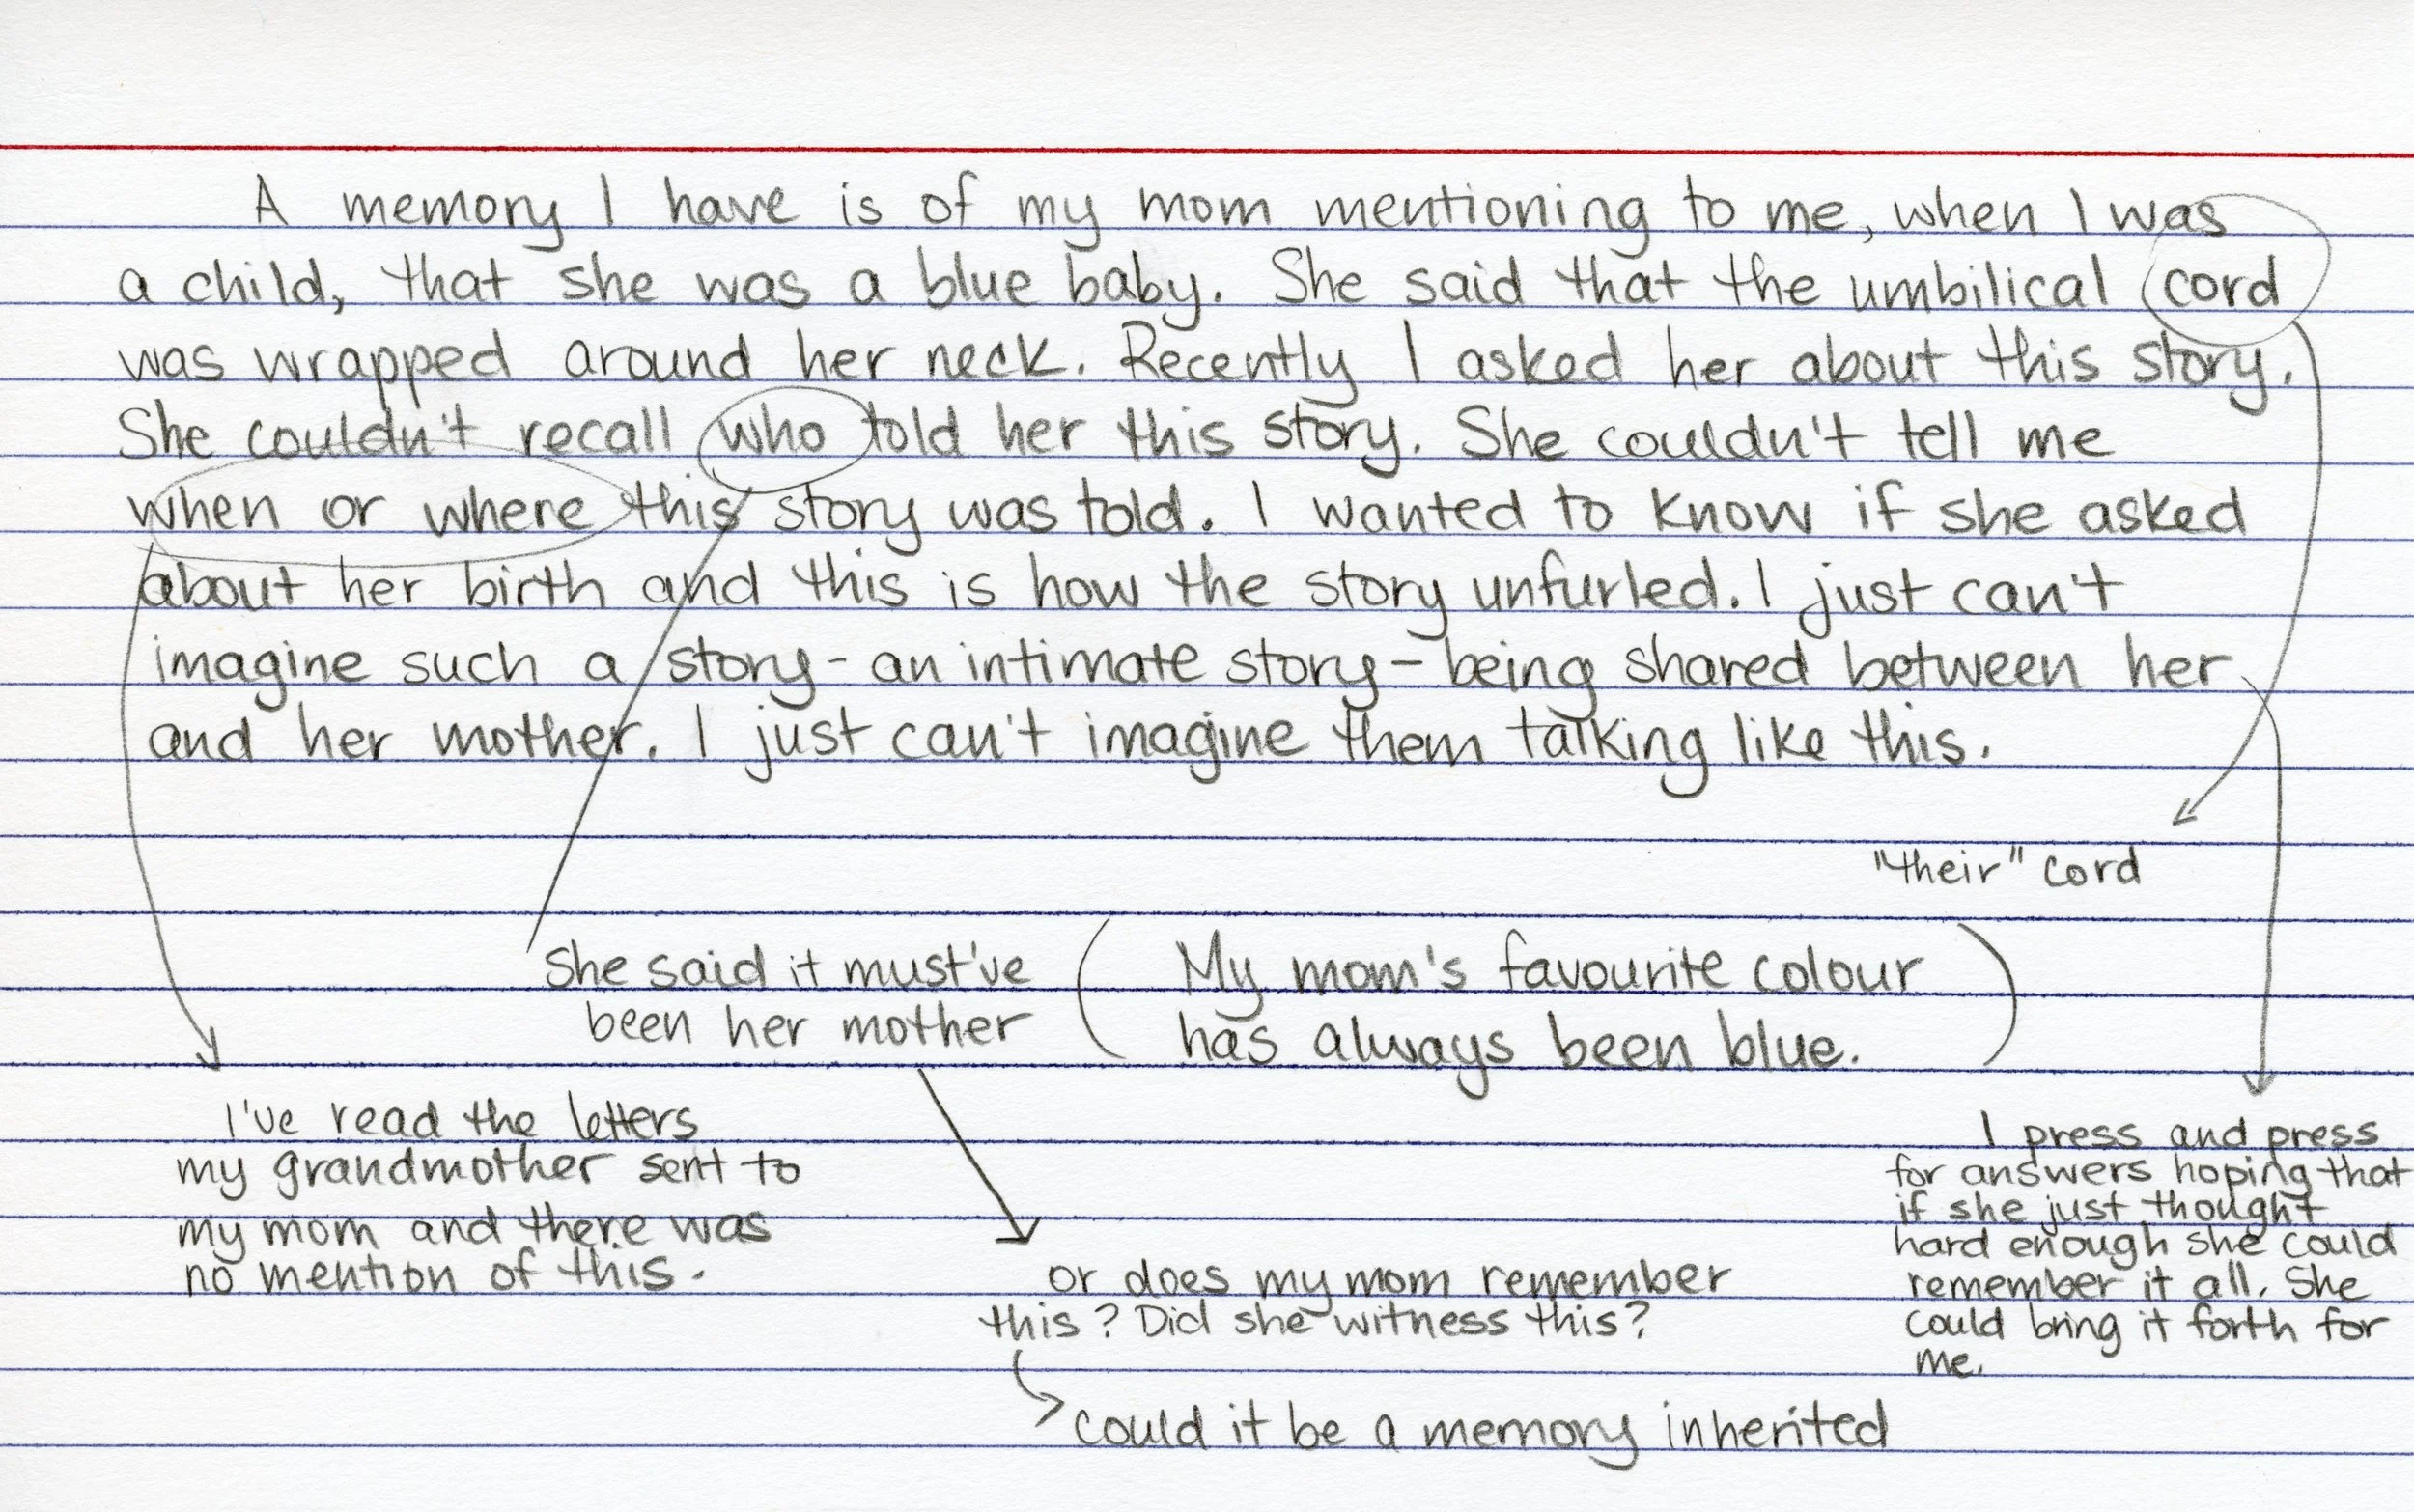 A memory I have is of my mom mentioning to me, when I was
a child, that she was a blue baby. She said that the umbilical cord
was wrapped around her neck. Recently I asked her about this story.
She couldn't recall who told her this story. She couldn't tell me
when or where this story was told. I wanted to know if she asked
about her birth and this is how the story unfurled. I just can't
imagine such a story - an intimate story - being shared between her
and her mother. I just can't imagine them talking like this.
"their" cord
She said it must've
been her mother
(My mom's favourite colour
has always been blue.)
I've read the letters
my grandmother sent to
my mom and there was
no mention of this.
or does my mom remember
this? Did she witness this?
could it be a memory inherited
I press and press
for answers hoping that
if she just thought
hard enough she could
remember it all. She
could bring it forth for
me.